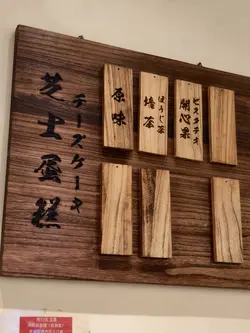 芝士蛋糕
チーズケーキ
原味
焙茶
ほうじ茶
開心果
ピスタチオ